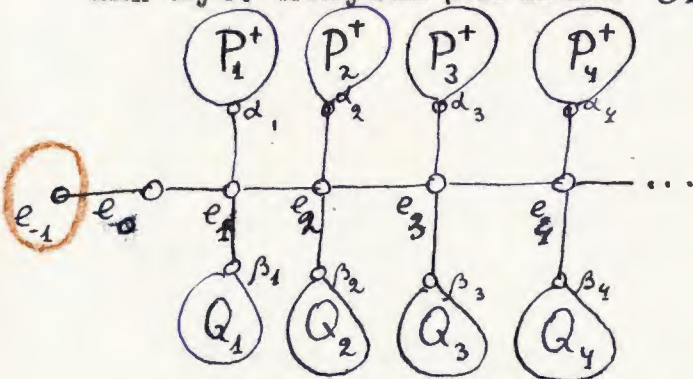 P₁⁺ P₂⁺ P₃⁺ P₄⁺
α₁ α₂ α₃ α₄
e₋₁ e₀ e₁ e₂ e₃ e₄ ...
β₁ β₂ β₃ β₄
Q₁ Q₂ Q₃ Q₄